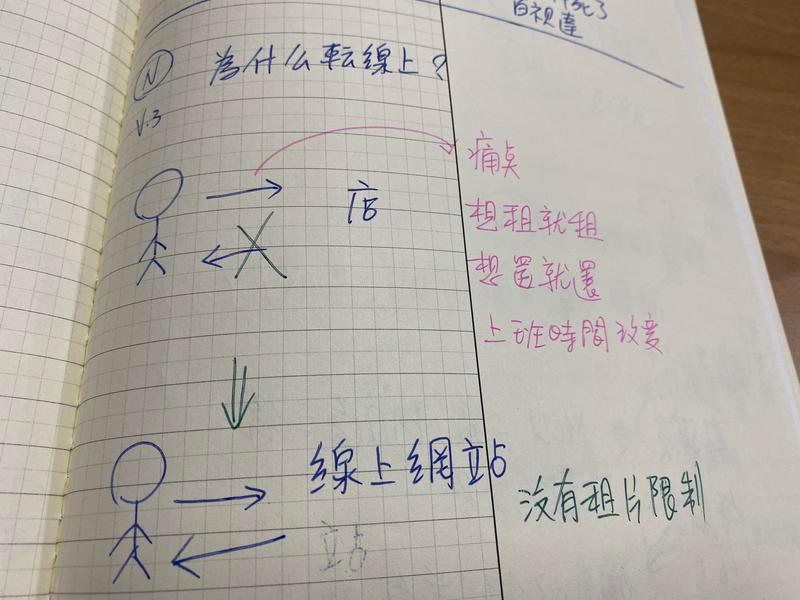 死了
百視達
N 為什么転線上?
V.3
痛点
店
想租就租
想還就還
上班時間
線上網站
没有租片限制
站